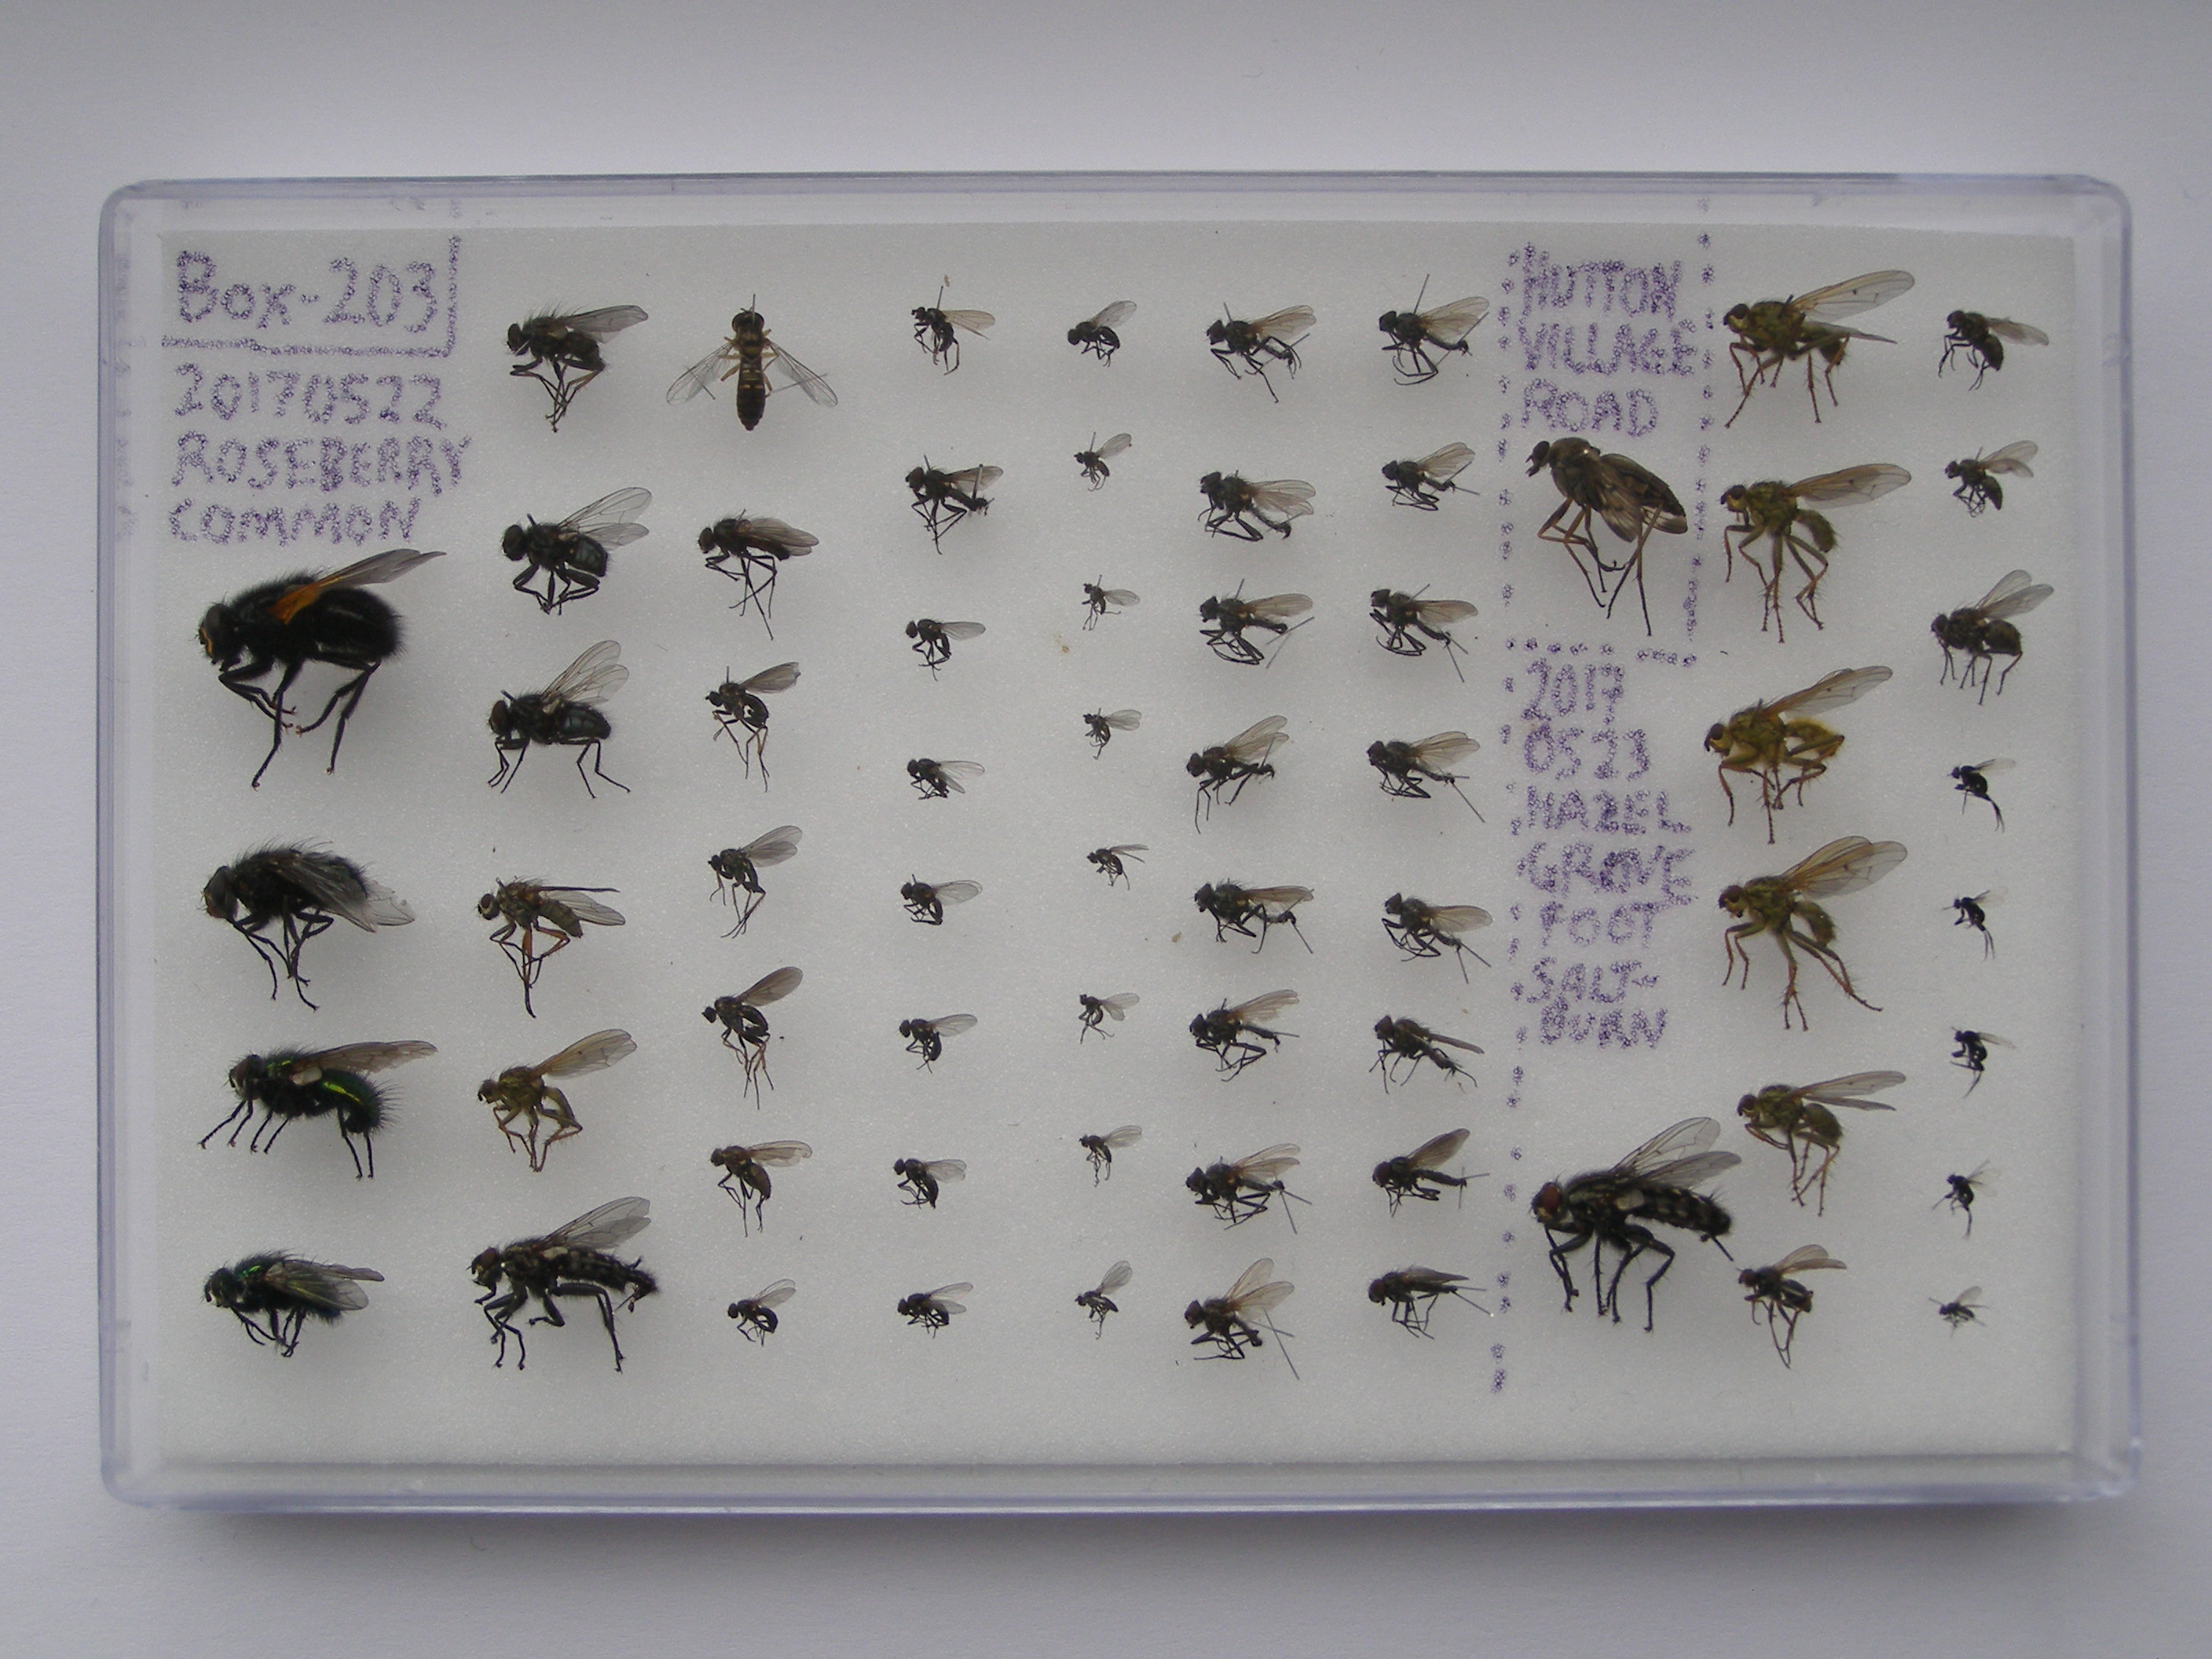 Box-203
20170522
ROSEBERRY
COMMON
HUTTON
VILLAGE
ROAD
2017
0523
HAZEL
GROVE
FOOT
SALT-
BURN